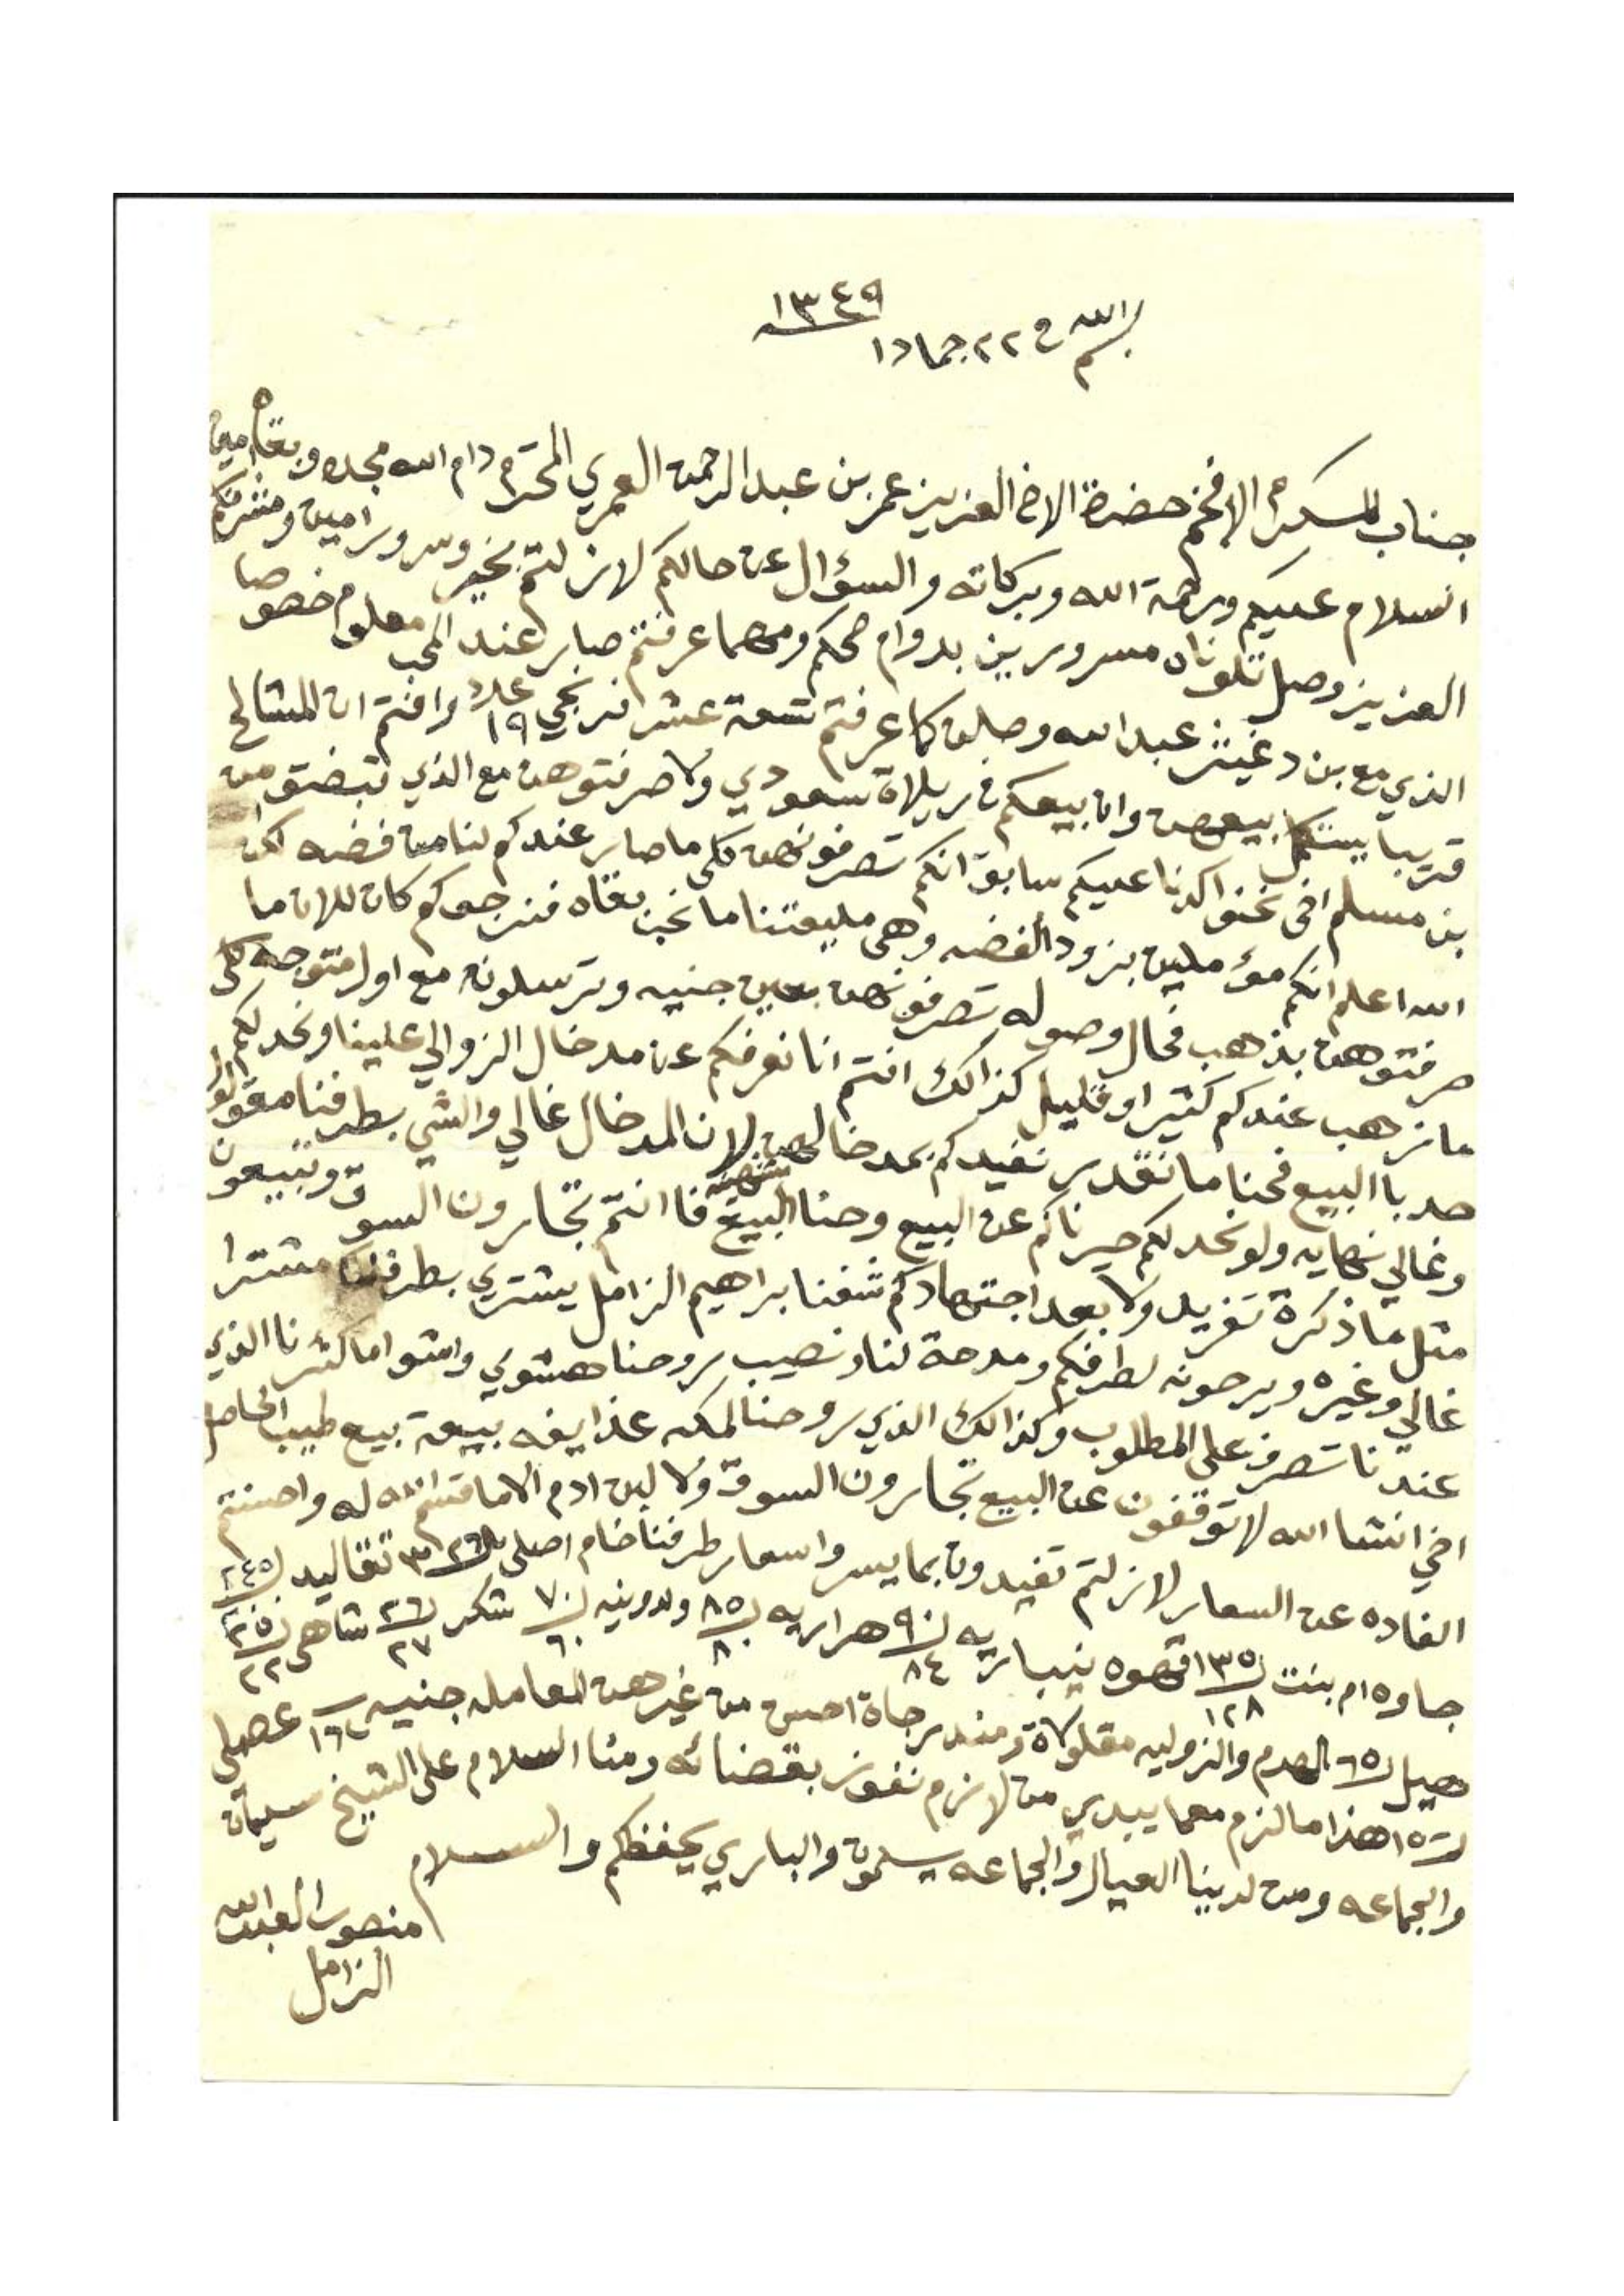 ١٣٤٩
بسم الله في ٢٢ جماد ١
جناب المكرم الافخم حضرة الاخ العزيز عمر بن عبد الرحمن العمري المحترم دام الله مجده وبقاه امين
السلام عليكم ورحمة الله وبركاته والسؤال عن حالكم لازلتم بخير وسرور امين ومشرفكم
العزيز وصل تلوناه مسرورين بدوام صحتكم ومهما عرفتم صار عند المحب معلوم خصوصا
الذي مع بن دغيثر عبد الله وصلن كما عرفتم تسعة عشر افرنجي عدد ١٩ وافتم ان المشالح
قريبا يبتكمل بيعهن وان بيعكم في ريلاة سعودي ولا صرفتوهن مع الذي تبضتو من
بن مسلم اخي نحنو اكدنا عليكم سابق انكم تصرفونهن كلما صار عندكم لنا من فضه لكن
الله اعلم انكم مؤملين بزود الفضه وهي مليعتنا ما نحب بقاه فنرجوكم كان للان ما
صرفتوهن بذهب فحال وصوله تصرفونهن بعين جنيه وترسلونه مع اول متوجه كلى
ما نرهب عندكم كثير او قليل كذالك افتم انا نعرفكم عن مدخال الزوالي علينا ونحد لكم
حد با البيع فحنا ما نقدر نفيدكم بمدخالهن لان المدخال غالي والشي بطرفنا مقولو
وغالي نهايه ولو نحد لكم حيرناكم عن البيع وحنا البيع فا انتم تجارون السوق وتبيعون
مثل ما ذكرة تفريد ولا بعد اجتهادكم شفنا براهيم الزامل يشتري بطرفنا مشترا
غالي وغيره ويرحونه لطرفكم ومدحة لنا ونصيب بروحنا هشوي وامتو اما كثرنا الذي
عندنا تصرف على المطلوب وكذالك الذي بروحنا لمكه عذايفه بيعة بيع طيب الحاصل
اخي انشا الله لا توقفون عن البيع تجارون السوق ولا لبن ادم الا ما قسم الله له واحسنتم
الفاده عن السعار لازلتم تفيدون بما يسر واسعار طرفنا خام اصلي ٣ تقاليد ٢٤٥
جاوه ام بنت ١٣٥ ١٢٨ قهوه نيباريه ٩٠ ٨٤ هراريه ٨٥ ٨٠ ولدوينه ٧٠ ٦٠ شكر ٢٦ ٢٧ شاهي ٢٥ ٢٢
هيل ٦٥ الهدم والزوليه مقلولاة ومندرجاة احسن من غيرهن المعامله جنيه ١٦ عصملي
١٥ هذا ما لزم معما يبدي من لازم نفوز بقضائه ومنا السلام على الشيخ سليمان
والجماعه ومن لدينا العيال والجماعه يسلمون والباري يحفظكم والسلام
منصور العبد الله
الزامل